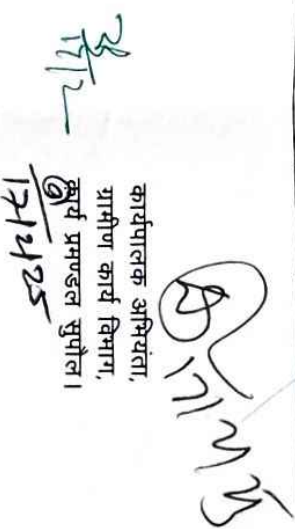 17/2/25
कार्यपालक अभियंता,
ग्रामीण कार्य विभाग,
कार्य प्रमण्डल सुपौल।
17/2/25
17/2